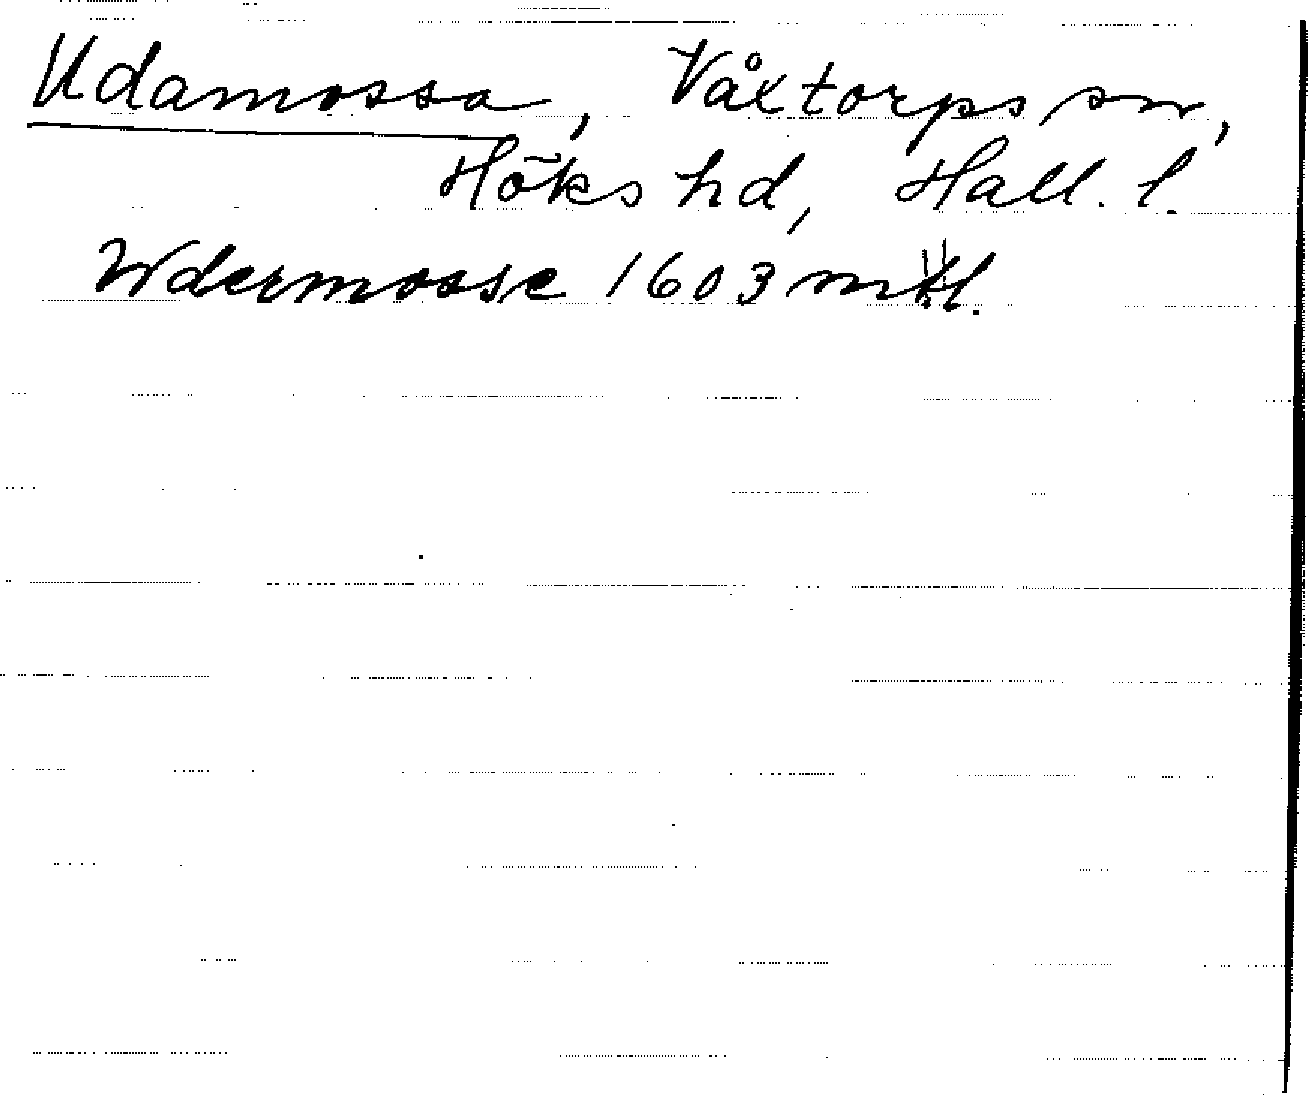 Udamossa, Våxtorps sn,
Höks hd, Hall. l.
Wdermosse 1603 mtl.